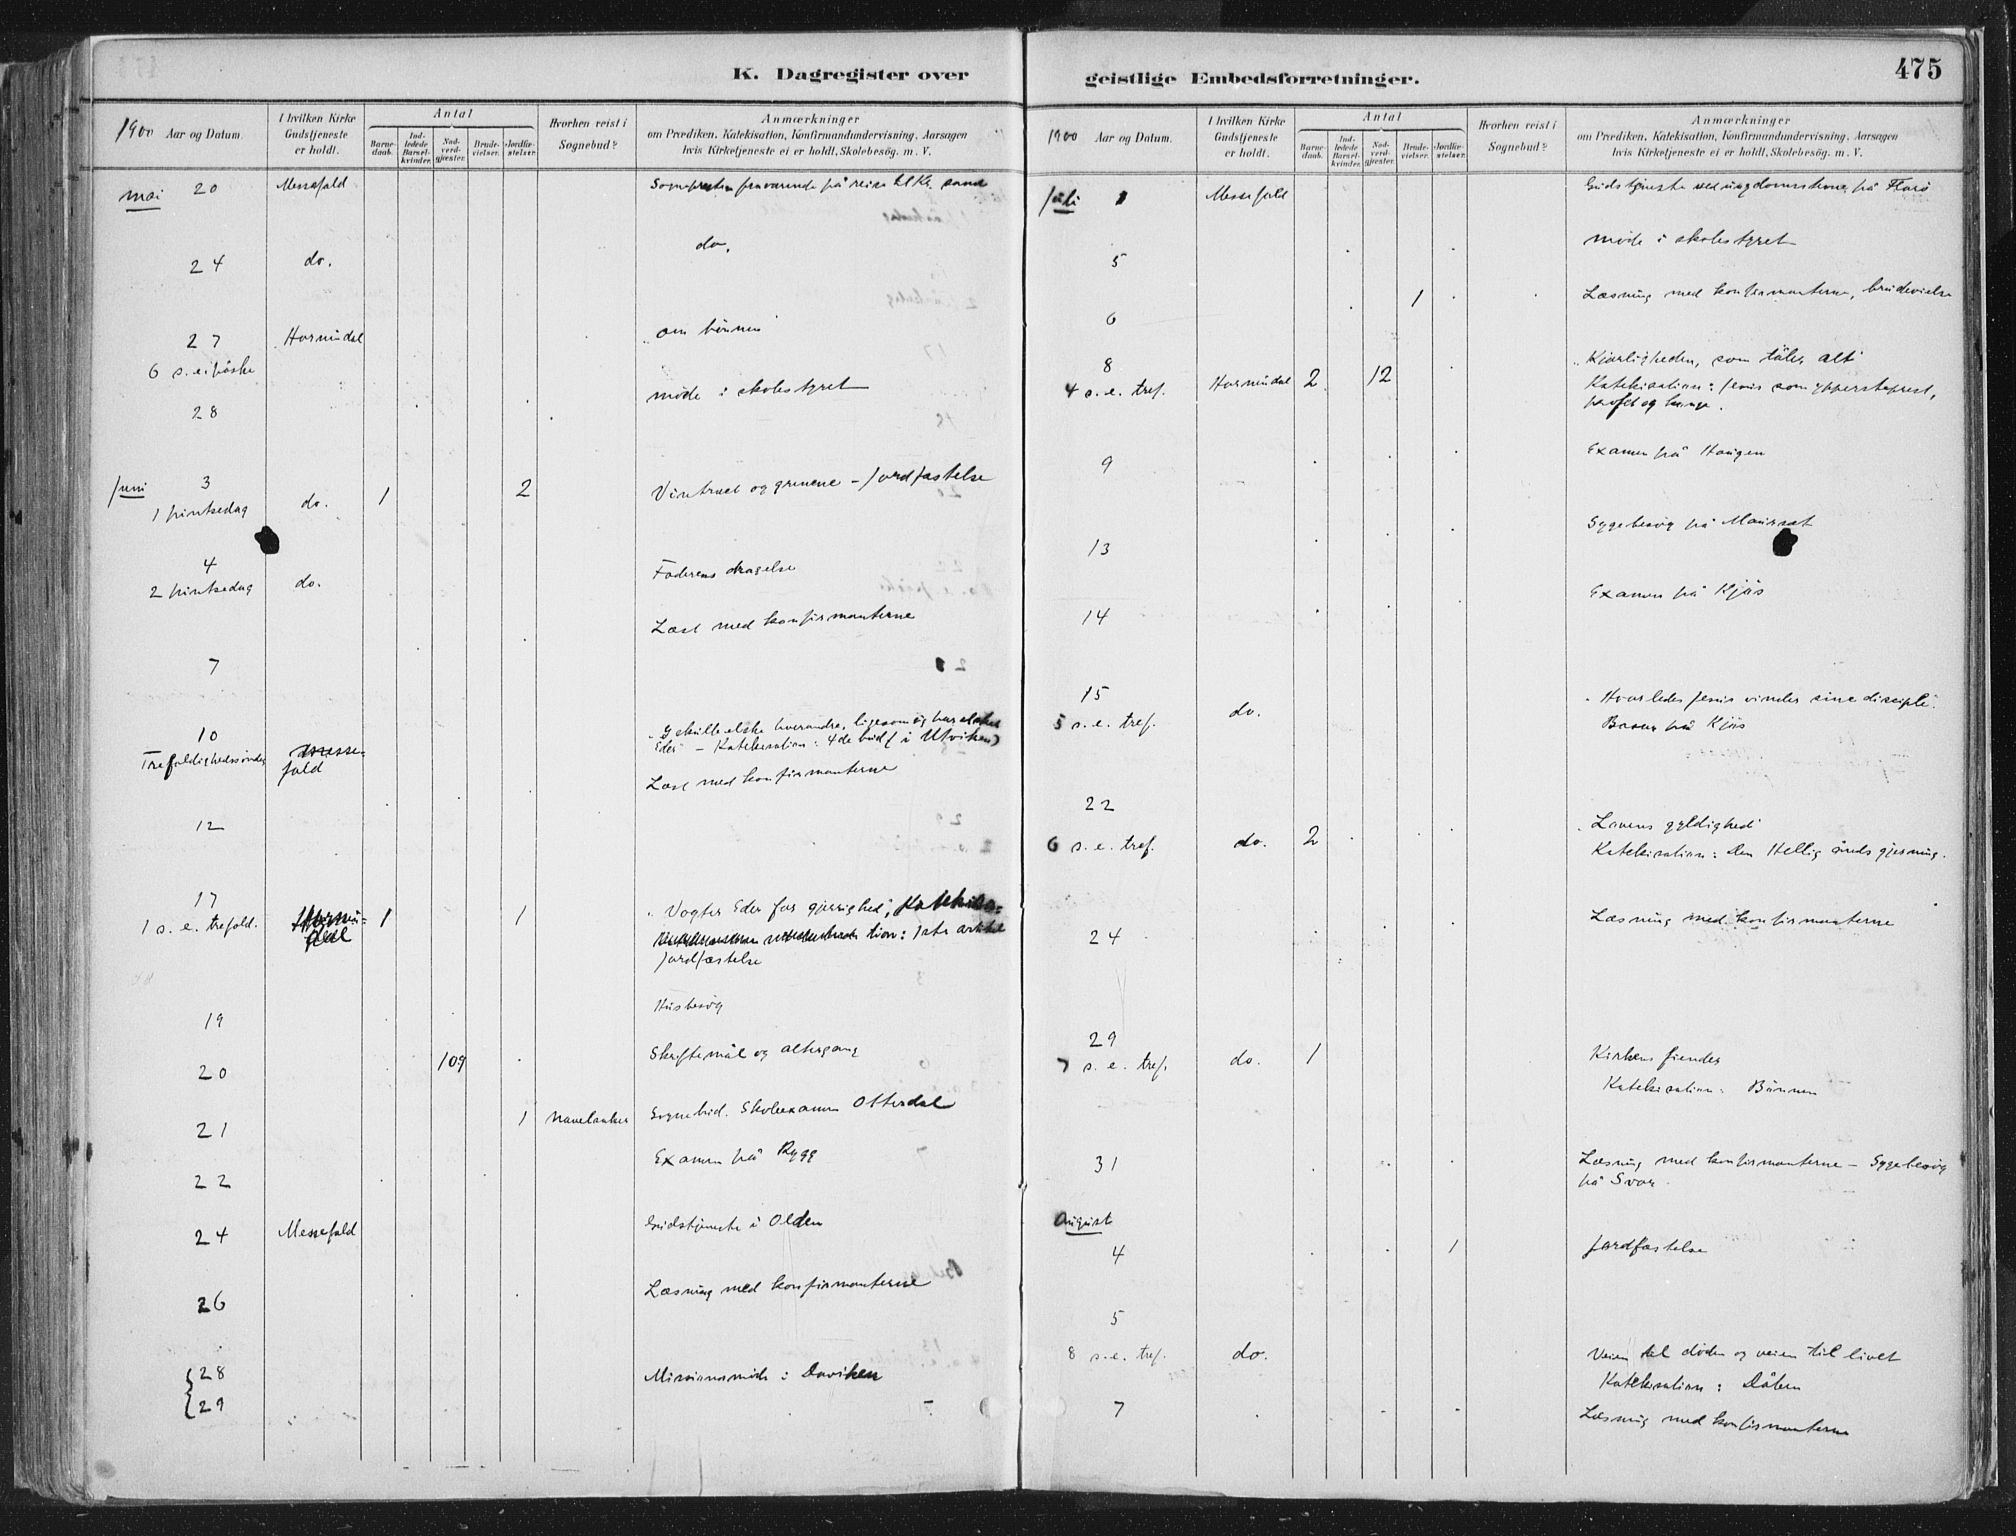 K. Dagregister over
1900 Aar og Datum.
I hvilken Kirke Gudstjeneste er holdt.
Antal
Barnedaab.
Indledede Barselkvinder.
Nadverdgjester.
Brudevielser.
Jordfæstelser.
Hvorhen reist i Sognebud?
Anmærkninger
om Prædiken, Katekisation, Konfirmandundervisning, Aarsagen
hvis Kirketjeneste ei er holdt, Skolebesøg. m. V.
mai 20 Messefald Sognepresten fraværende på reise til Kr. sand
24 do. do.
27 Hornindal "om bønnen"
6 s. e. påske
28 møde i skolestyret
Juni 3
1 pintsedag do. 1 2 Vintræet og grenene - Jordfæstelse
4
2 pintsedag do. Faderens dragelse
7 Læst med konfirmanterne
10 "I skulle elske hverandre, ligesom jeg har elsket
Trefoldighedssøndag Messefald Eder" - Katekisation: 4de bud (i Utviken)
12 Læst med konfirmanterne
17
1 s. e. trefold. Hornindal 1 1 "Vogter Eder for gjerrighed", Katekisa=
tion: 1ste artikel
Jordfæstelse
19 Husbesøg
20 109 Skriftemål og altergang
21 1 Navelsaker Sognebud. Skoleexamen Otterdal
22 Examen på Rygg
24 Messefald Gudstjeneste i Olden
26 Læsning med konfirmanterne
28
29 Missionsmøde i Daviken
geistlige Embedsforretninger.
475
1900 Aar og Datum.
I hvilken Kirke Gudstjeneste er holdt.
Antal
Barnedaab.
Indledede Barselkvinder.
Nadverdgjester.
Brudevielser.
Jordfæstelser.
Hvorhen reist i Sognebud?
Anmærkninger
om Prædiken, Katekisation, Konfirmandundervisning, Aarsagen
hvis Kirketjeneste ei er holdt, Skolebesøg. m. V.
Juli 1 Messefald Gudstjeneste ved ungdomsstevne på Florø
5 møde i skolestyret
6 1 Læsning med konfirmanterne, brudevielse
8 "Kjærligheden, som tåler alt"
4 s. e. tref. Hornindal 2 12 Katekisation: Jesus som yppersteprest,
profet og konge.
9 Examen på Haugen
13 Sygebesøg på Maurset
14 Examen på Kjøs
15 "Hvorledes Jesus vinder sine disciple"
5 s. e. tref. do. Basar på Kjøs
22 "Lovens gyldighed"
6 s. e. tref. do. 2 Katekisation: Den Hellig ånds gjerning.
24 Læsning med konfirmanterne
29 Kirkens fiender
7 s. e. tref. do. 1 Katekisation: Bønnen
31 Læsning med konfirmanterne - Sygebesøg
på Svor
August
4 1 Jordfæstelse
5
8 s. e. tref. do. Veien til døden og veien til livet
Katekisation: Dåben
7 Læsning med konfirmanterne